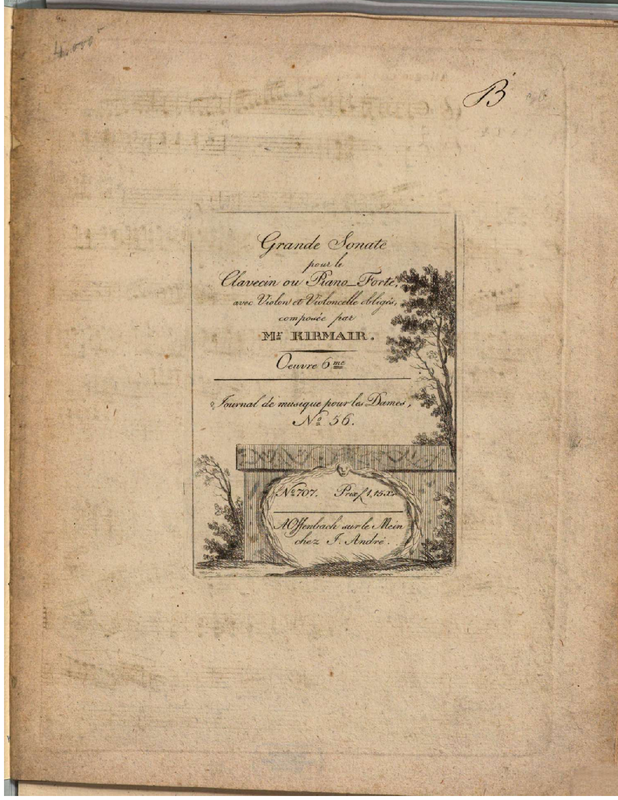 4.000
B
Grande Sonate
pour le
Clavecin ou Piano-Forte,
avec Violon et Violoncelle obligés,
composée par
Mr. KIRMAIR.
Oeuvre 6me
Journal de musique pour les Dames,
No. 56.
No. 707. Prix f 1,15 Xr.
A Offenbach sur le Mein
chez J. André.